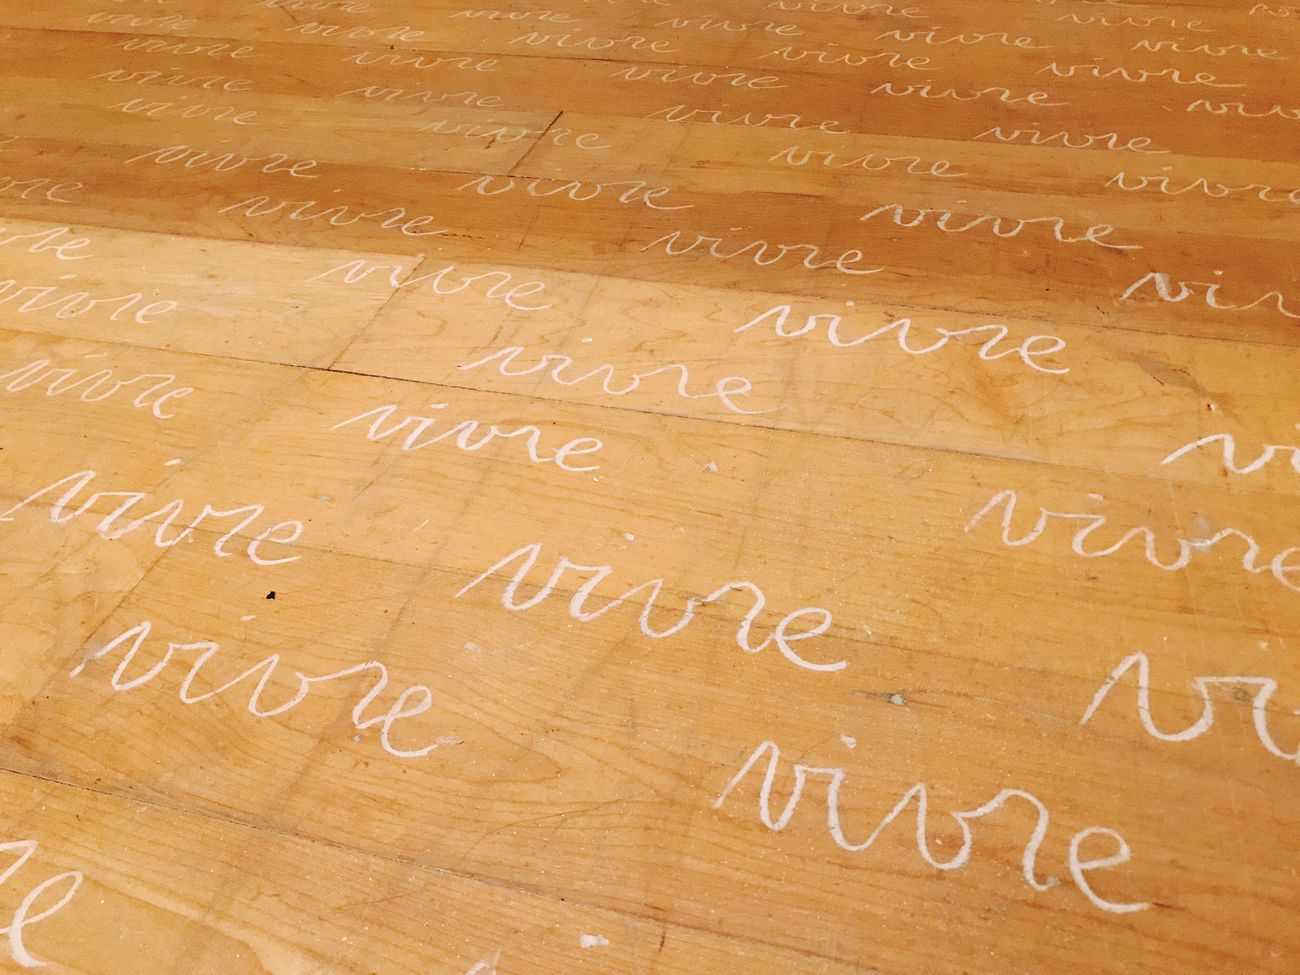 vivre vivre vivre vivre
vivre vivre vivre vivre vivre
vivre vivre vivre vivre
vivre vivre vivre vivre
vivre vivre vivre vivre
vivre vivre vivre
vivre vivre vivre vivre
vivre vivre vivre
vivre vivre
vivre vivre
vivre vivre
vivre vivre
vivre vivre
vivre vivre
vivre
vivre